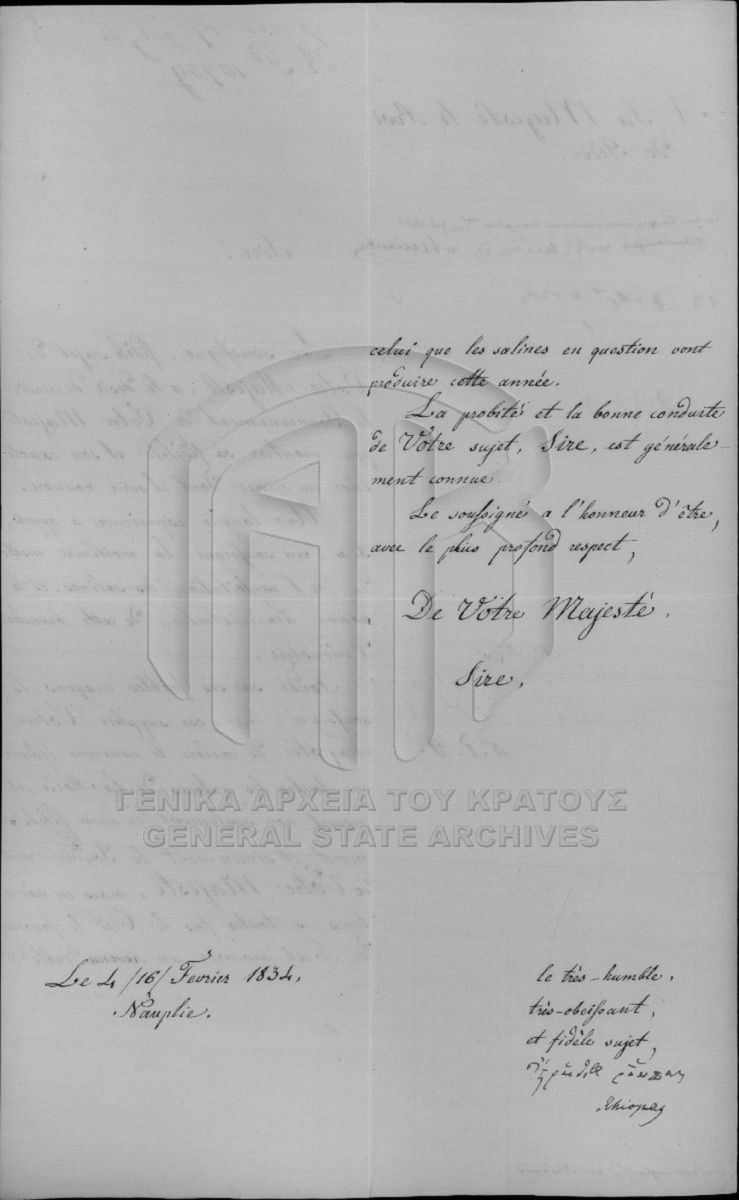 celui que les salines en question vont
produire cette année.
La probité et la bonne conduite
de Vôtre sujet, Sire, est générale-
ment connue.
Le soussigné a l'honneur d'être,
avec le plus profond respect,
De Vôtre Majesté.
Sire,
ΓΕΝΙΚΑ ΑΡΧΕΙΑ ΤΟΥ ΚΡΑΤΟΥΣ
GENERAL STATE ARCHIVES
Le 4/16/ Fevrier 1834,
Nauplie.
le très-humble,
très-obeissant,
et fidèle sujet,